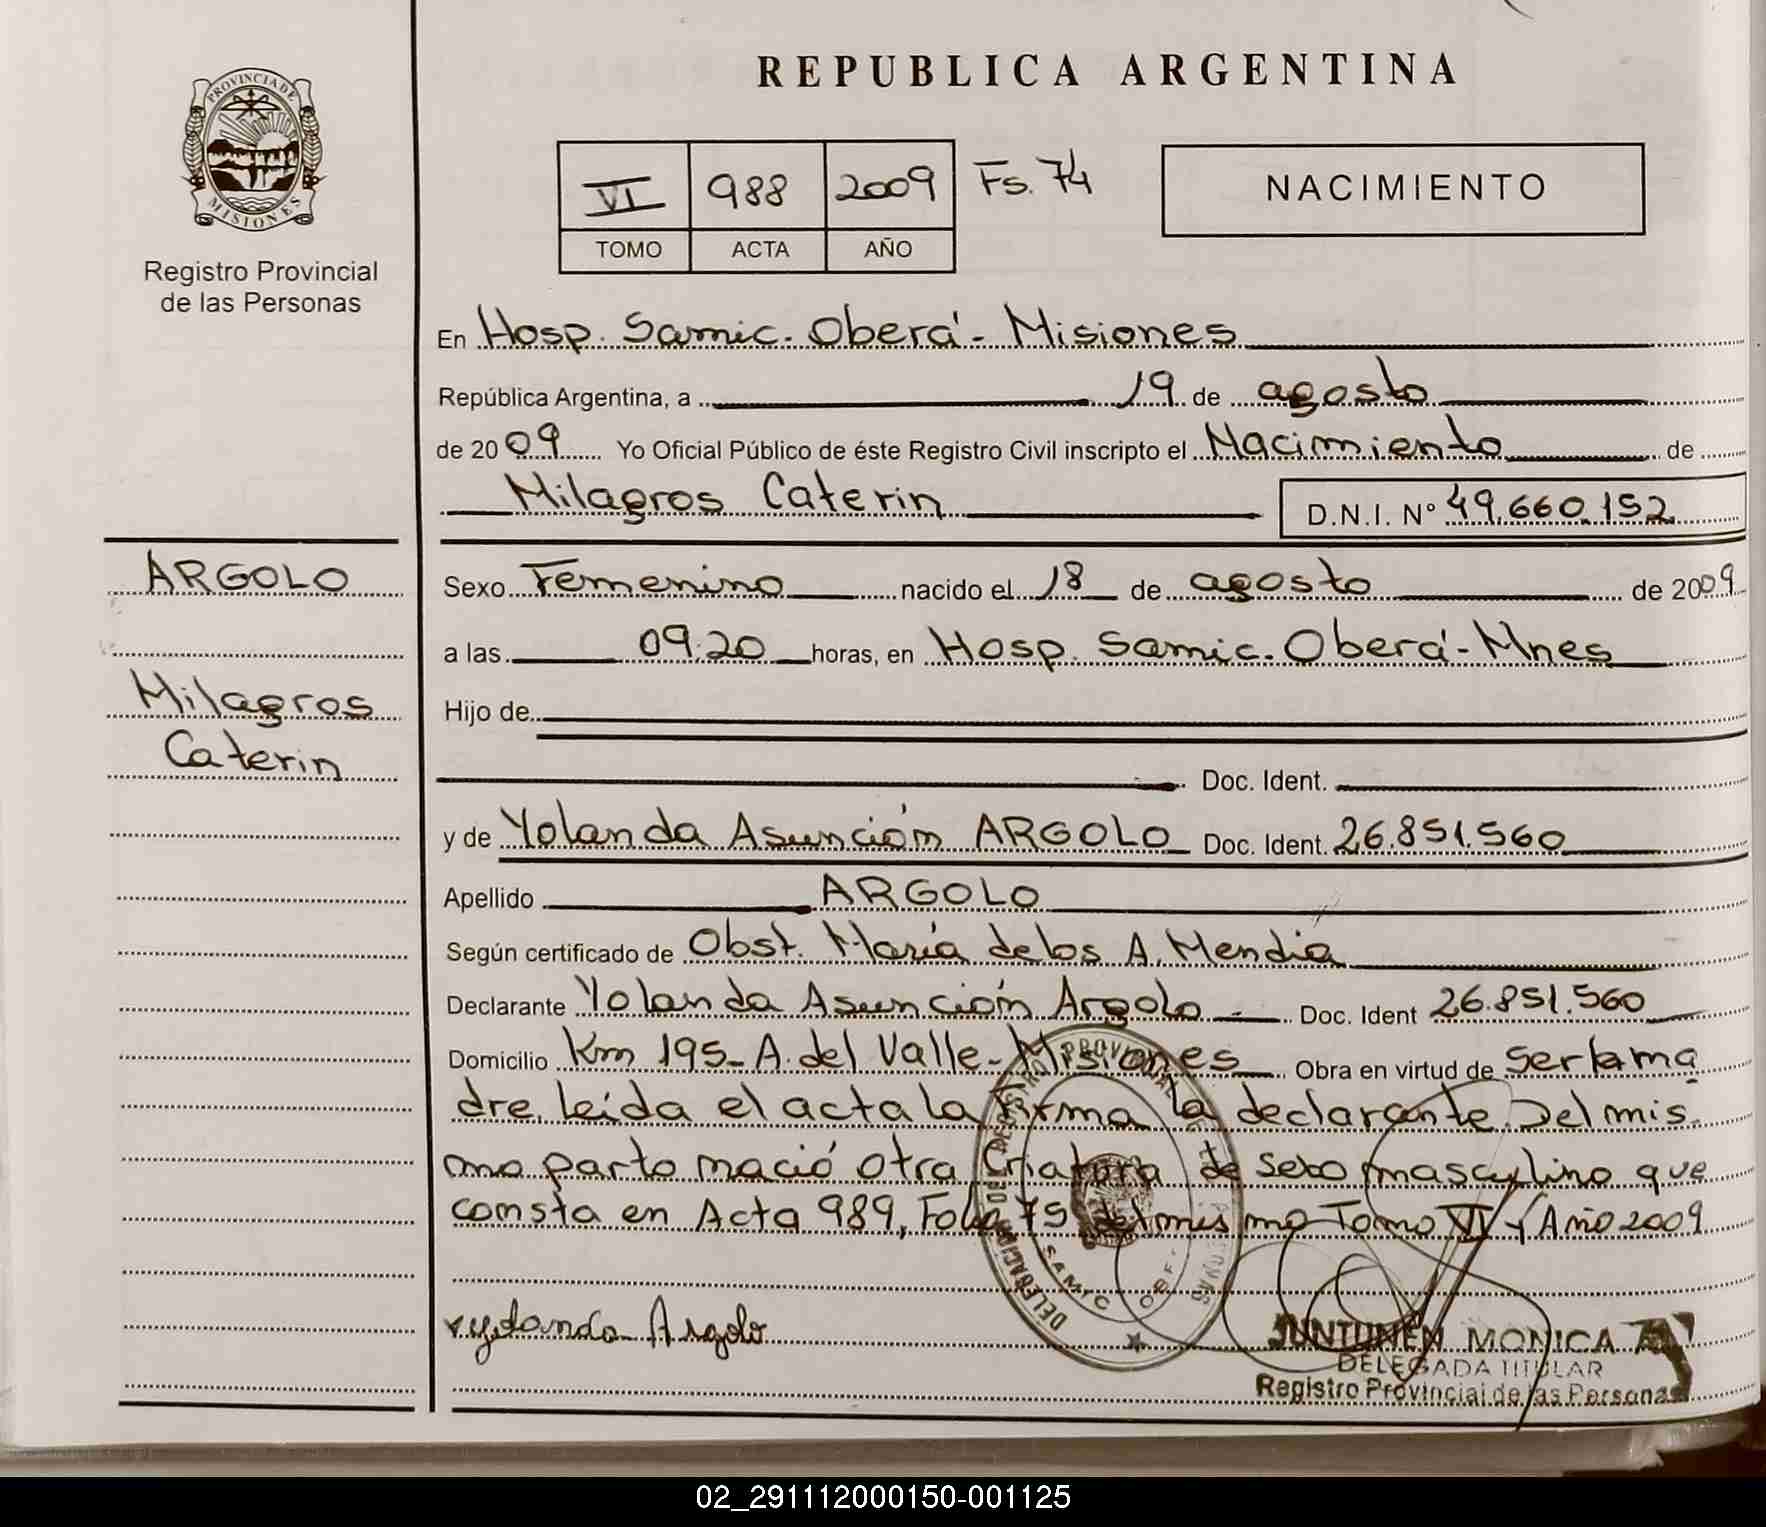 REPUBLICA ARGENTINA
PROVINCIA DE MISIONES
Registro Provincial
de las Personas
VI 988 2009 Fs. 74
TOMO ACTA AÑO
NACIMIENTO
En Hosp. Samic. Oberá - Misiones
República Argentina, a 19 de agosto
de 2009 Yo Oficial Público de éste Registro Civil inscripto el Nacimiento de
Milagros Caterin D.N.I. Nº 49.660.152
ARGOLO
Milagros
Caterin
Sexo Femenino nacido el 18 de agosto de 2009
a las 09.20 horas, en Hosp. Samic. Oberá - Mnes
Hijo de
Doc. Ident.
y de Yolanda Asunción ARGOLO Doc. Ident. 26.851.560
Apellido ARGOLO
Según certificado de Obst. María de los A. Mendia
Declarante Yolanda Asunción Argolo Doc. Ident 26.851.560
Domicilio Km 195 - A. del Valle - Misiones Obra en virtud de ser la ma
dre. leída el acta la firma la declarante. Del mis
mo parto nació otra Criatura de sexo masculino que
consta en Acta 989, Folio 75 del mismo Tomo VI y Año 2009
DELEGACION REGISTRO PROVINCIAL DE
SAMIC
Argolo
JUNTUNEN MONICA
DELEGADA TITULAR
Registro Provincial de las Personas
02_291112000150-001125